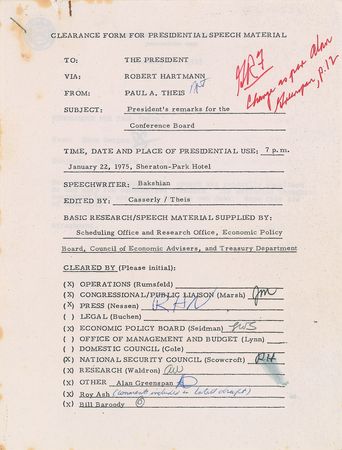 CLEARANCE FORM FOR PRESIDENTIAL SPEECH MATERIAL
GRF
Change as per Alan
Greenspan, p. 12
TO: THE PRESIDENT
VIA: ROBERT HARTMANN
FROM: PAUL A. THEIS
SUBJECT: President's remarks for the
Conference Board
TIME, DATE AND PLACE OF PRESIDENTIAL USE: 7 p.m.
January 22, 1975, Sheraton-Park Hotel
SPEECHWRITER: Bakshian
EDITED BY: Casserly / Theis
BASIC RESEARCH/SPEECH MATERIAL SUPPLIED BY:
Scheduling Office and Research Office, Economic Policy
Board, Council of Economic Advisers, and Treasury Department
CLEARED BY (Please initial):
(X) OPERATIONS (Rumsfeld)
(X) CONGRESSIONAL/PUBLIC LIAISON (Marsh) JM
(X) PRESS (Nessen) RHN
( ) LEGAL (Buchen)
(X) ECONOMIC POLICY BOARD (Seidman) LWS
( ) OFFICE OF MANAGEMENT AND BUDGET (Lynn)
( ) DOMESTIC COUNCIL (Cole)
(X) NATIONAL SECURITY COUNCIL (Scowcroft)
(X) RESEARCH (Waldron)
(X) OTHER Alan Greenspan
(x) Roy Ash (comments included in latest draft)
(x) Bill Baroody